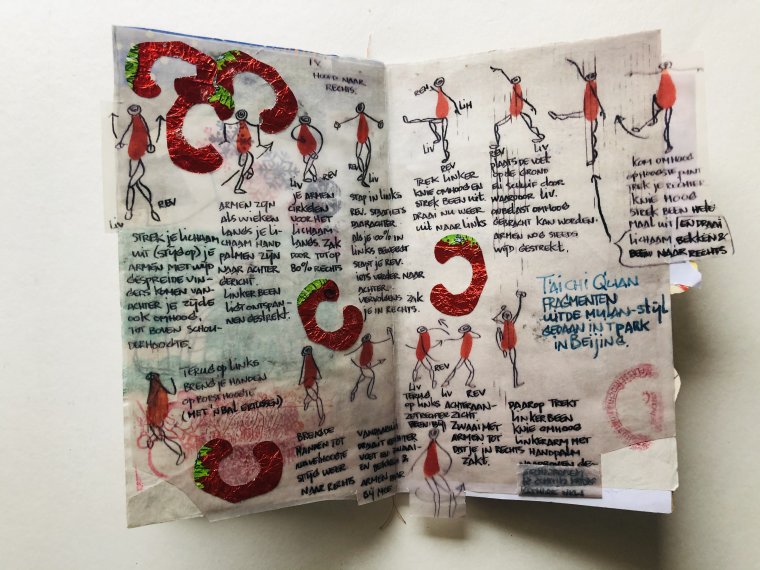 IV.
HOOFD NAAR
RECHTS.
LIV
REV
STREK JE LICHAAM
UIT (STIJG OP) JE
ARMEN MET WIJD
GESPREIDE VIN-
GERS KOMEN VAN-
ACHTER JE ZIJDE
OOK OMHOOG.
TOT BOVEN SCHOU-
DERHOOGTE.
ARMEN ZIJN
ALS WIEKEN
LANGS JE LI-
CHAAM HAND
PALMEN ZIJN
NAAR ACHTER
GERICHT.
LINKERBEEN
LIGT ONTSPAN-
NEN GESTREKT.
LIV
REV
JE ARMEN
CIRKELEN
VOOR HET
LICHAAM
LANGS ZAK
DOOR TOT OP
80% RECHTS
REV
LIV
STAP IN LINKS
REV. STAAT IETS
DAARACHTER.
ALS JE 100% IN
LINKS BEWEEGT
STAPT JE REV.
IETS VERDER NAAR
ACHTER.
VERVOLGENS ZAK
JE IN RECHTS.
TERUG OP LINKS
BRENG JE HANDEN
OP BORSTHOOGTE
(MET 'N BAL ERTUSSEN)
BRENG DE
HANDEN TOT
NAVELHOOGTE
STIJG WEER
NAAR RECHTS
VANDAARUIT
DRAAIT RECHTER
VOET EN
EN BEKKEN &
ARMEN
BIJ MEE
REH
LIH
LIV
REV
TREK LINKER
KNIE OMHOOG EN
STREK BEEN UIT.
DRAAI NU WEER
UIT NAAR LINKS
REV
LIV
PLAATS DE VOET
OP DE GROND
EN SCHUIF DOOR
WAARDOOR LIV.
ONBELAST OMHOOG
GEBRACHT KAN WORDEN.
ARMEN NOG STEEDS
WIJD GESTREKT.
KOM OMHOOG
OP HOOGSTE PUNT
TREK JE RECHTER
KNIE HOOG
STREK BEEN HELE
MAAL UIT / EN DRAAI
LICHAAM BEKKEN &
BEEN NAAR RECHTS
TAI CHI QUAN
FRAGMENTEN
UIT DE MULAN-STIJL
GEDAAN IN 'T PARK
IN BEIJING.
REV
LIV
LIV
REV
TERUG
OP LINKS
ACHTERAAN-
ZICHT.
ZWAAI MET
ARMEN TOT
DAT JE IN RECHTS
ZAKT.
DAAROP TREKT
LINKERBEEN
KNIE OMHOOG
LINKERARM MET
HANDPALM